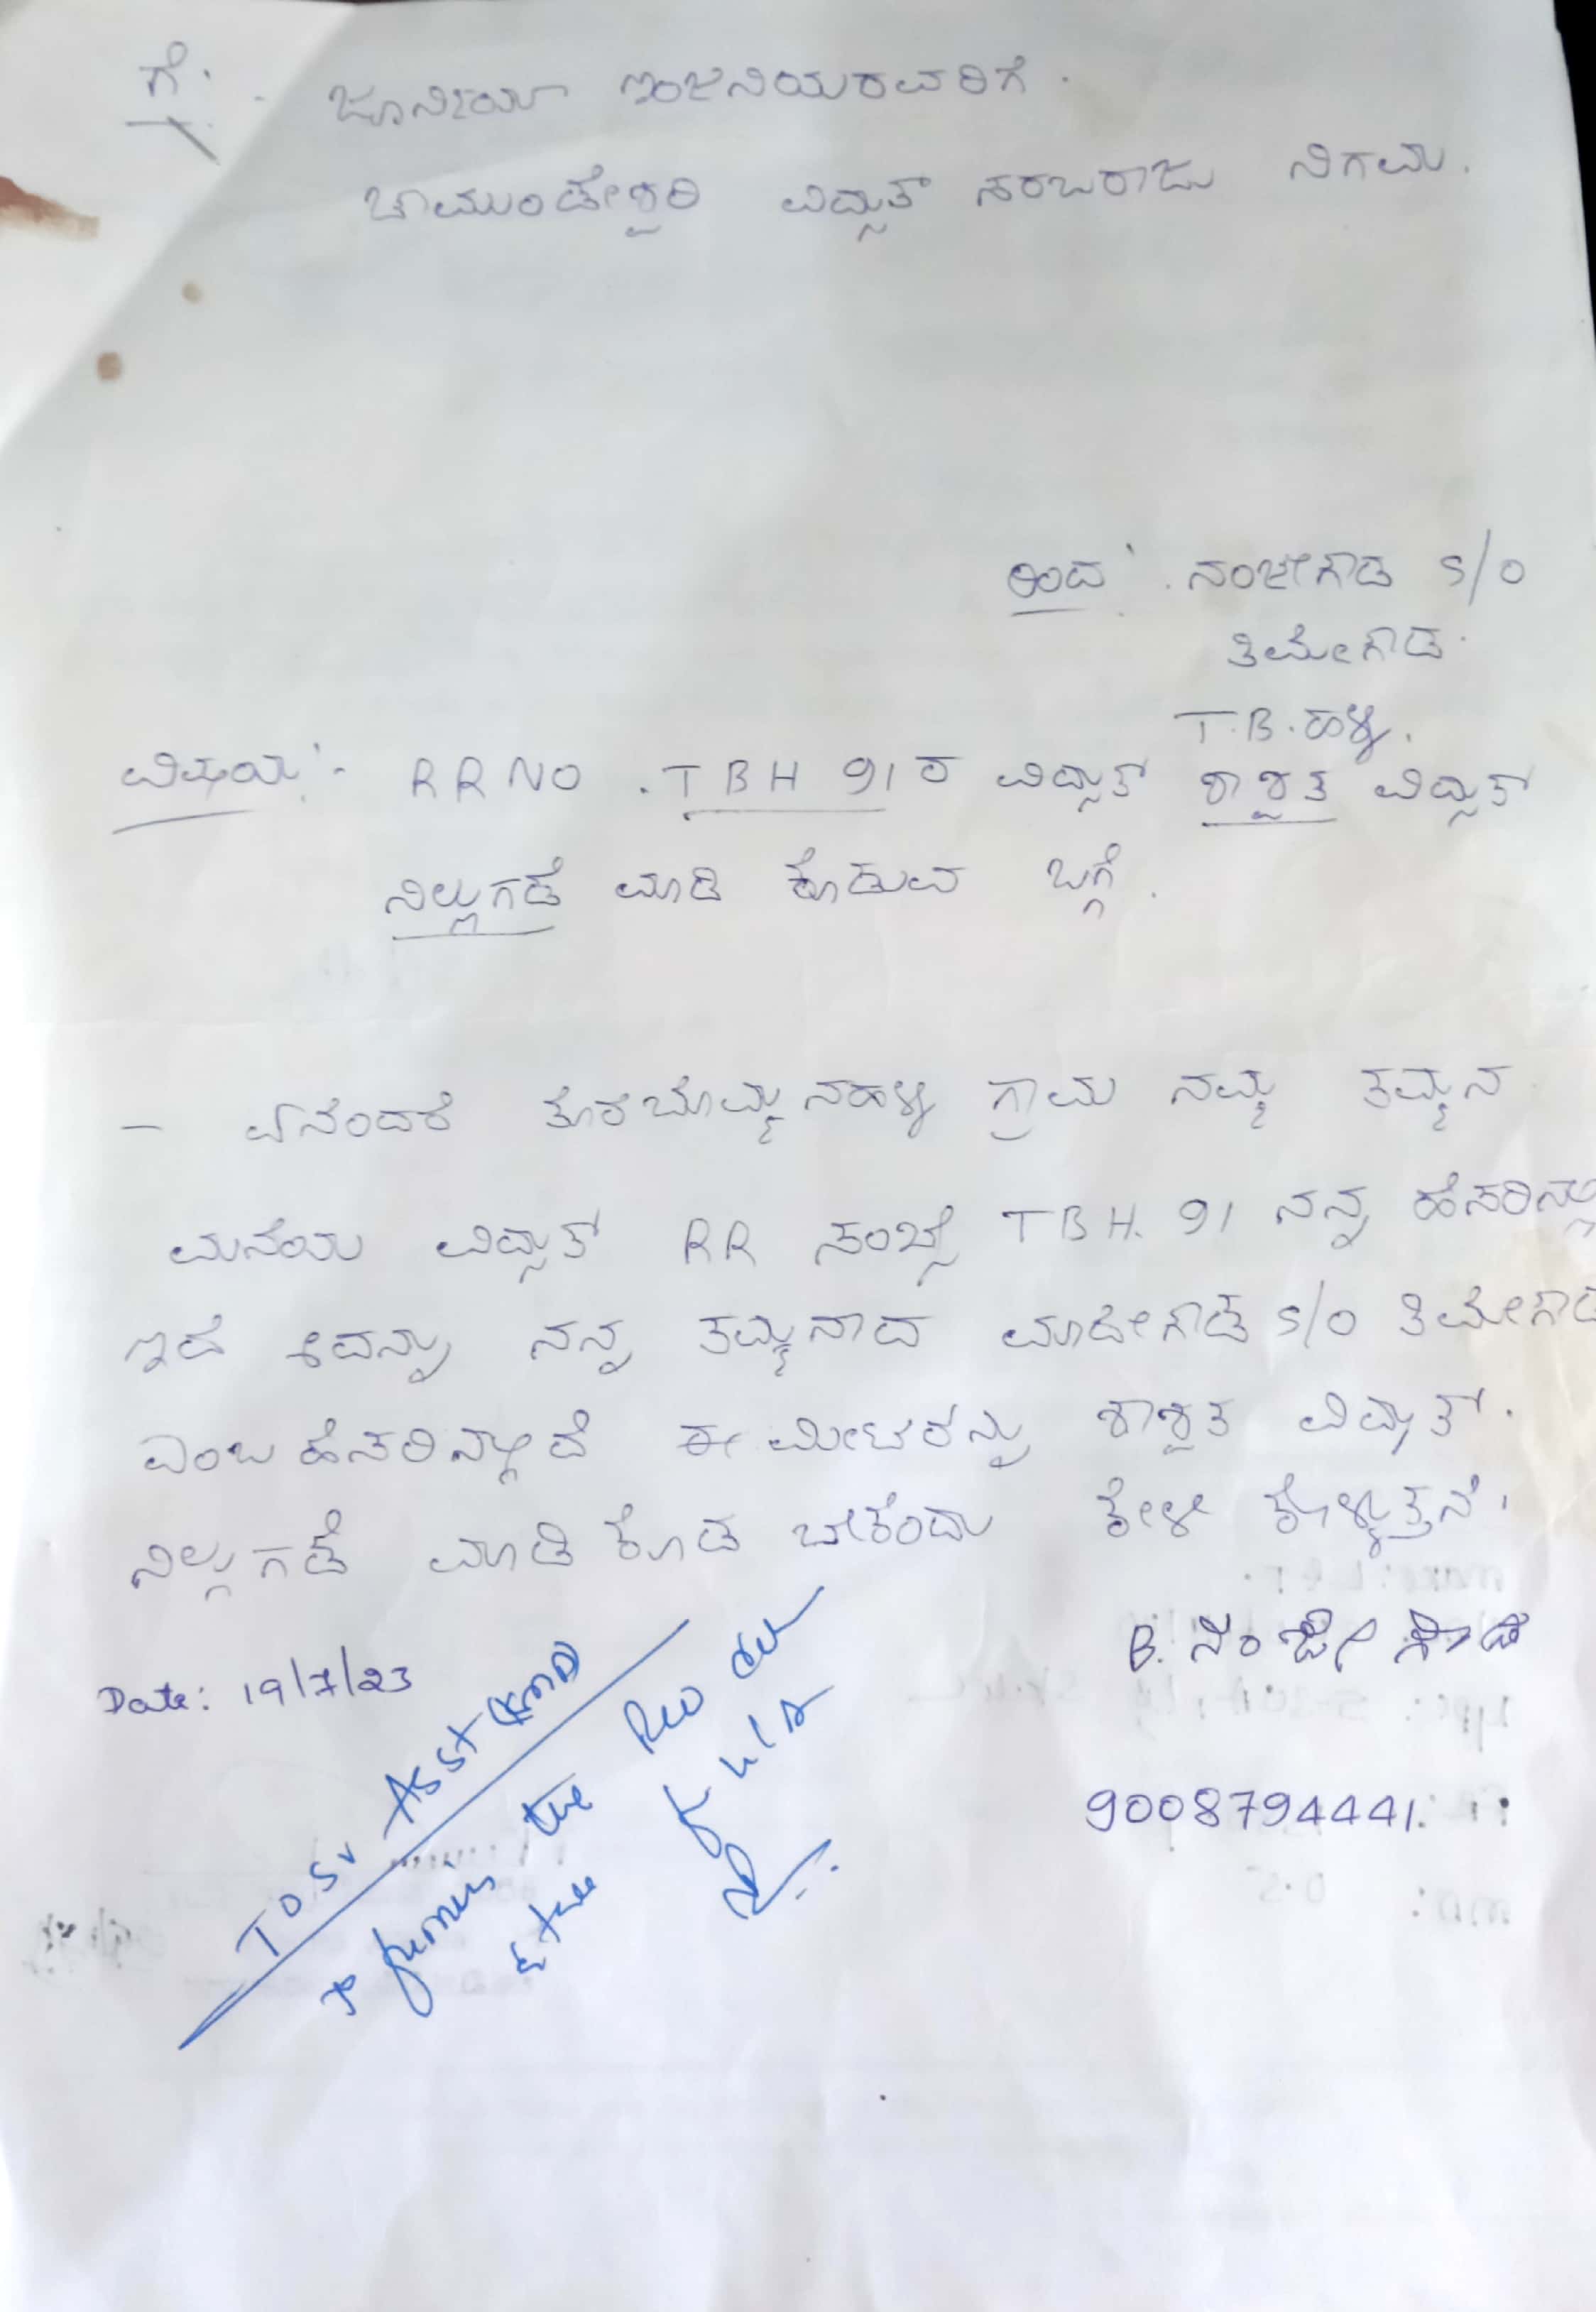 ಗೆ.
ಜೂನಿಯರ್ ಇಂಜನಿಯರವರಿಗೆ.
ಚಾಮುಂಡೇಶ್ವರಿ ವಿದ್ಯುತ್ ಸರಬರಾಜು ನಿಗಮ.
ಇಂದ: ನಂಜೇಗೌಡ S/O
ತಿಮೇಗೌಡ.
T.B.ಹಳ್ಳಿ.
ವಿಷಯ:- RR NO .TBH 91ರ ವಿದ್ಯುತ್ ಶಾಶ್ವತ ವಿದ್ಯುತ್
ನಿಲ್ಲುಗಡೆ ಮಾಡಿ ಕೊಡುವ ಬಗ್ಗೆ.
- ಏನೆಂದರೆ ತೊರೆಬೊಮ್ಮನಹಳ್ಳಿ ಗ್ರಾಮ ನಮ್ಮ ತಮ್ಮನ
ಮನೆಯ ವಿದ್ಯುತ್ RR ಸಂಖ್ಯೆ TBH. 91 ನನ್ನ ಹೆಸರಿನಲ್ಲಿ
ಇದೆ ಇದನ್ನು ನನ್ನ ತಮ್ಮನಾದ ಮಾದೇಗೌಡ S/O ತಿಮೇಗೌಡ
ಎಂಬ ಹೆಸರಿನಲ್ಲಿದೆ ಈ ಮೀಟರನ್ನು ಶಾಶ್ವತ ವಿದ್ಯುತ್.
ನಿಲ್ಲುಗಡೆ ಮಾಡಿ ಕೊಡ ಬೇಕೆಂದು ಕೇಳಿ ಕೊಳ್ಳುತ್ತೇನೆ.
B. ನಂಜೇಗೌಡ
Date: 19/7/23
9008794441.
TO Sv Asst
to furnis the